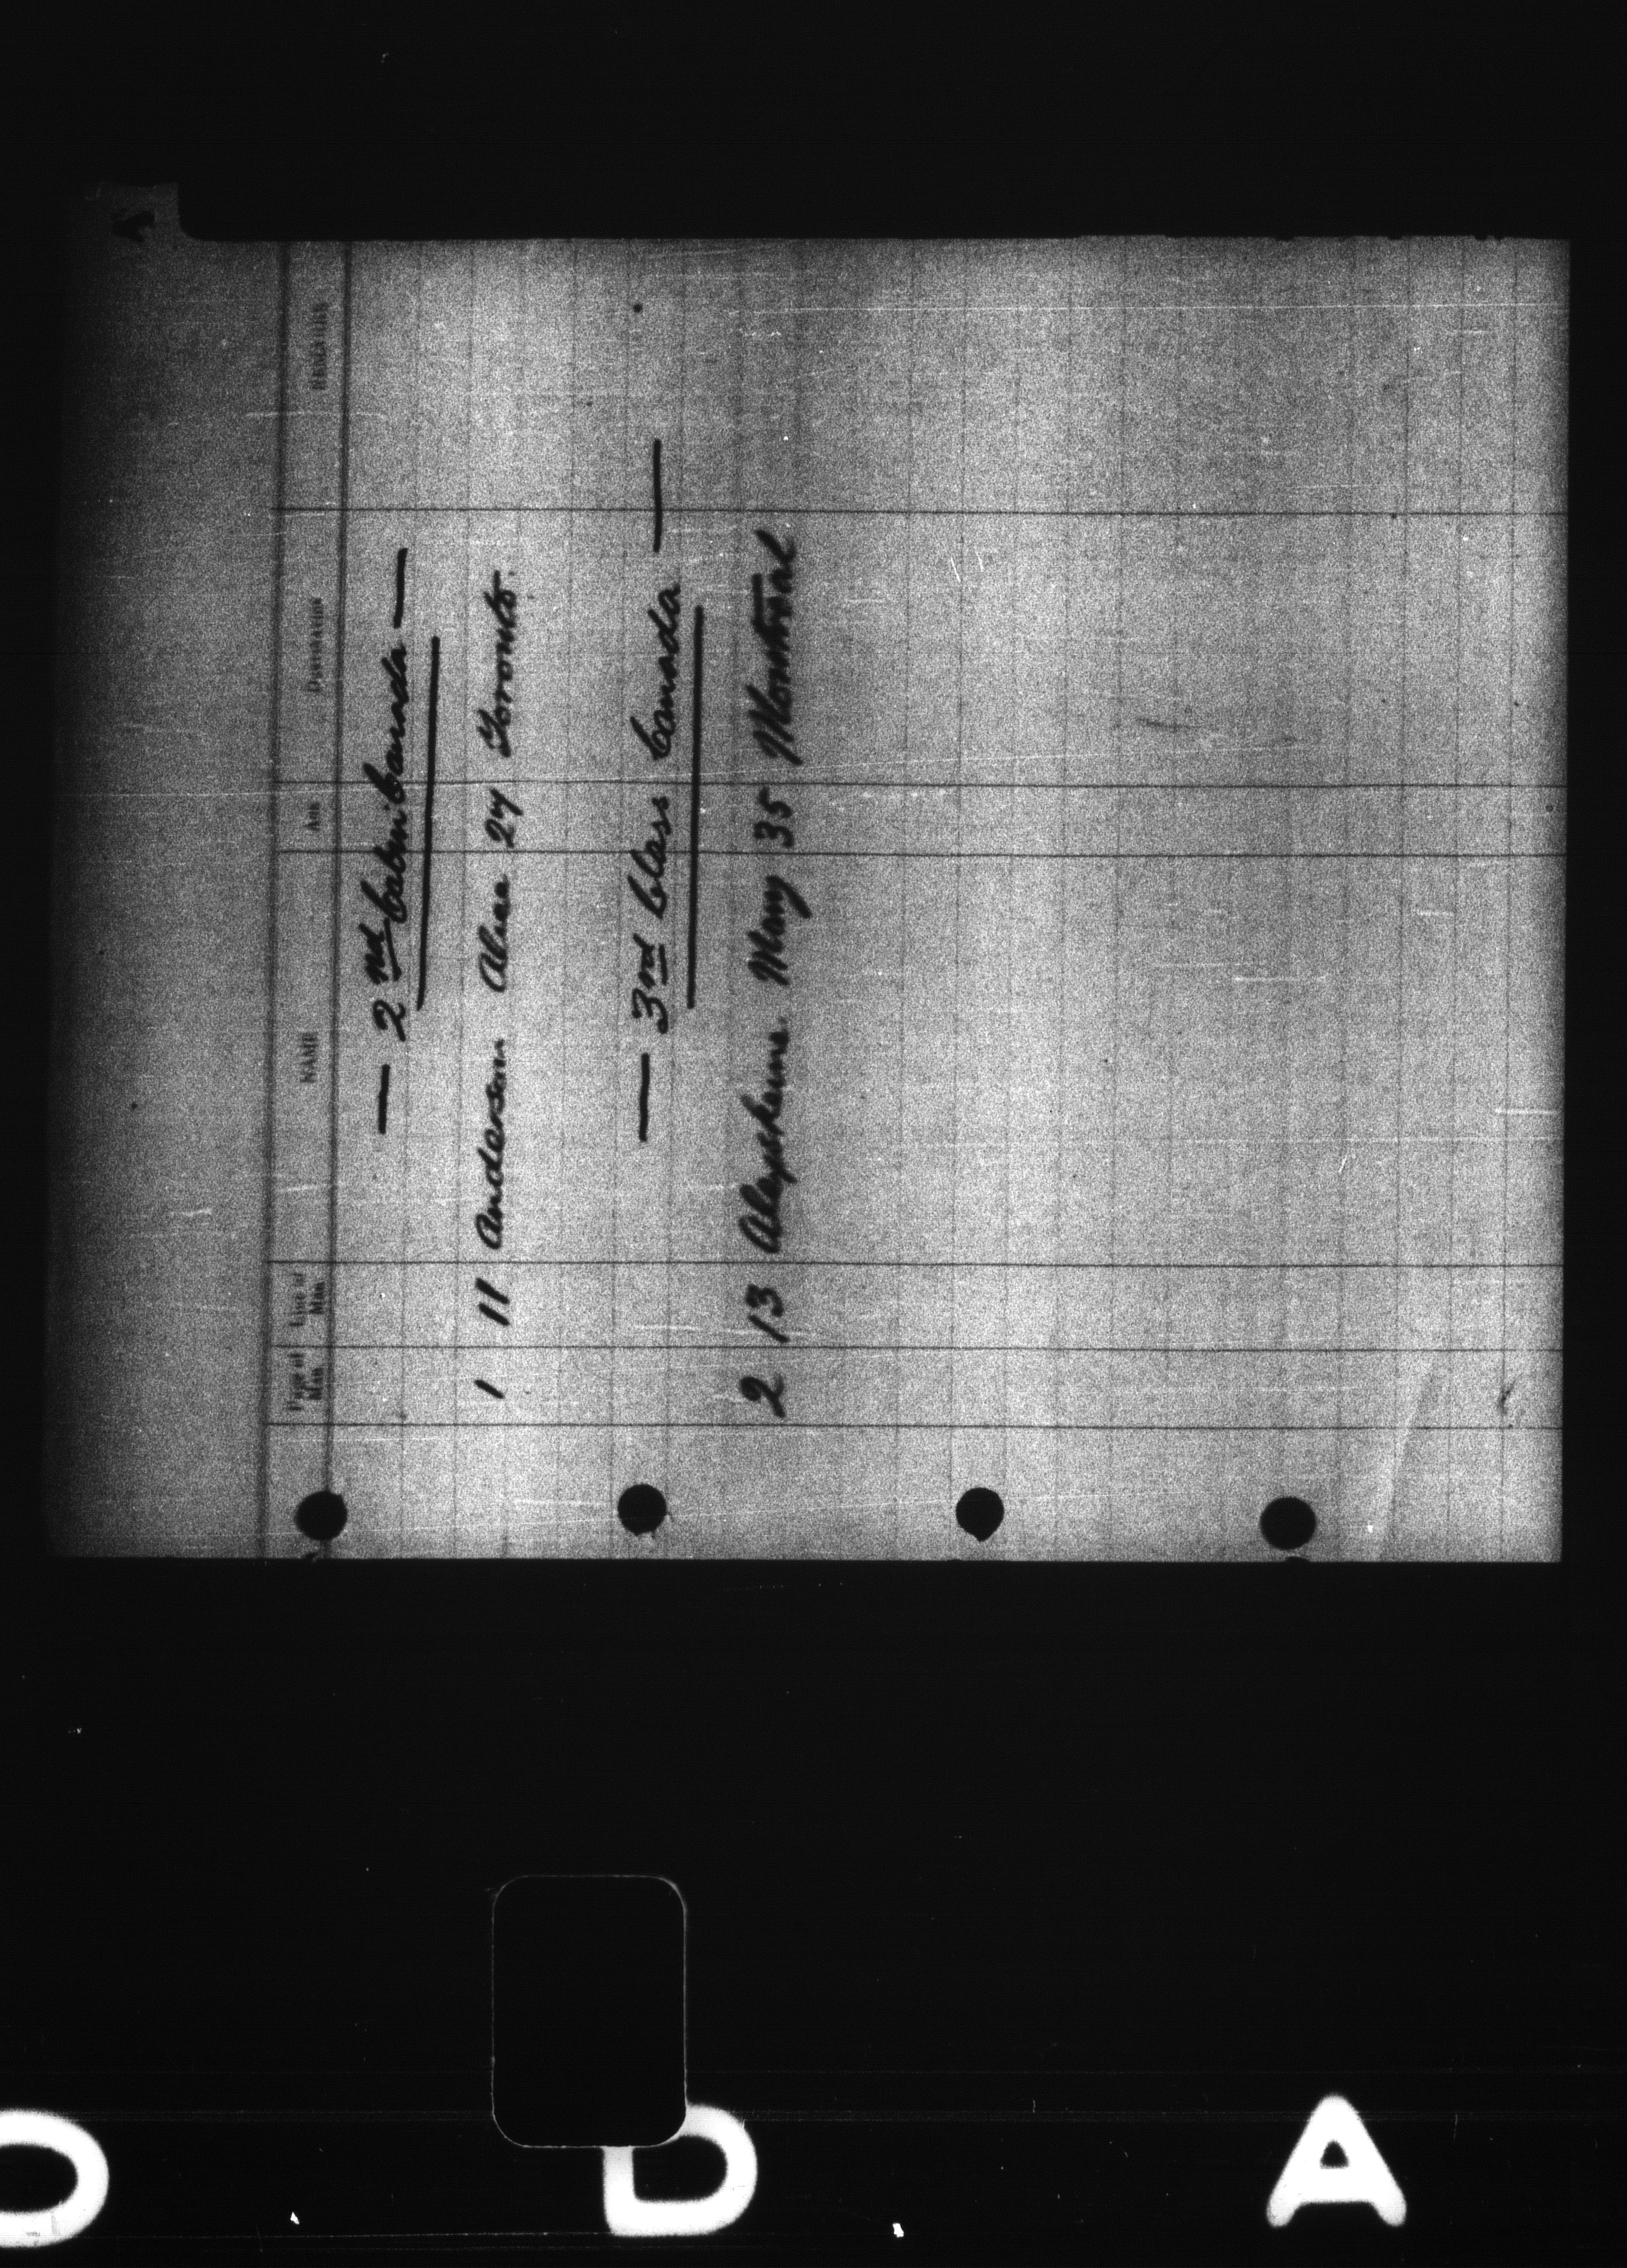 A
Page of Man. Line of Man. NAME AGE DESTINATION
— 2nd Cabin Canada —
1 11 Anderson Alice 27 Toronto.
— 3rd Class Canada —
2 13 Mary 35 Montreal
D A